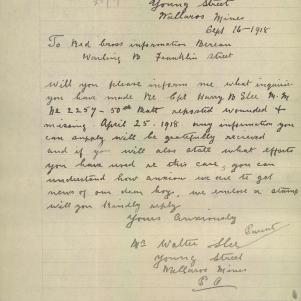 Young Street
Wallaroo Mines
Sept 16-1918
To Red Cross information Bereau
Franklin Street
Will you please inform me what inquirie
you have made Re Cpl Harry B Slee M.M
No 2257-50th Batt reported wounded &
missing April 25.1918 any information you
can supply will be gratefully received
and if you will also state what efforts
you have used in this case, you can
understand how anxious we are to get
news of our dear boy, we enclose a stamp
will you kindly reply
Yours Anxiously
Mr Walter Slee
Parent
Young Street
Wallaroo Mines
S A